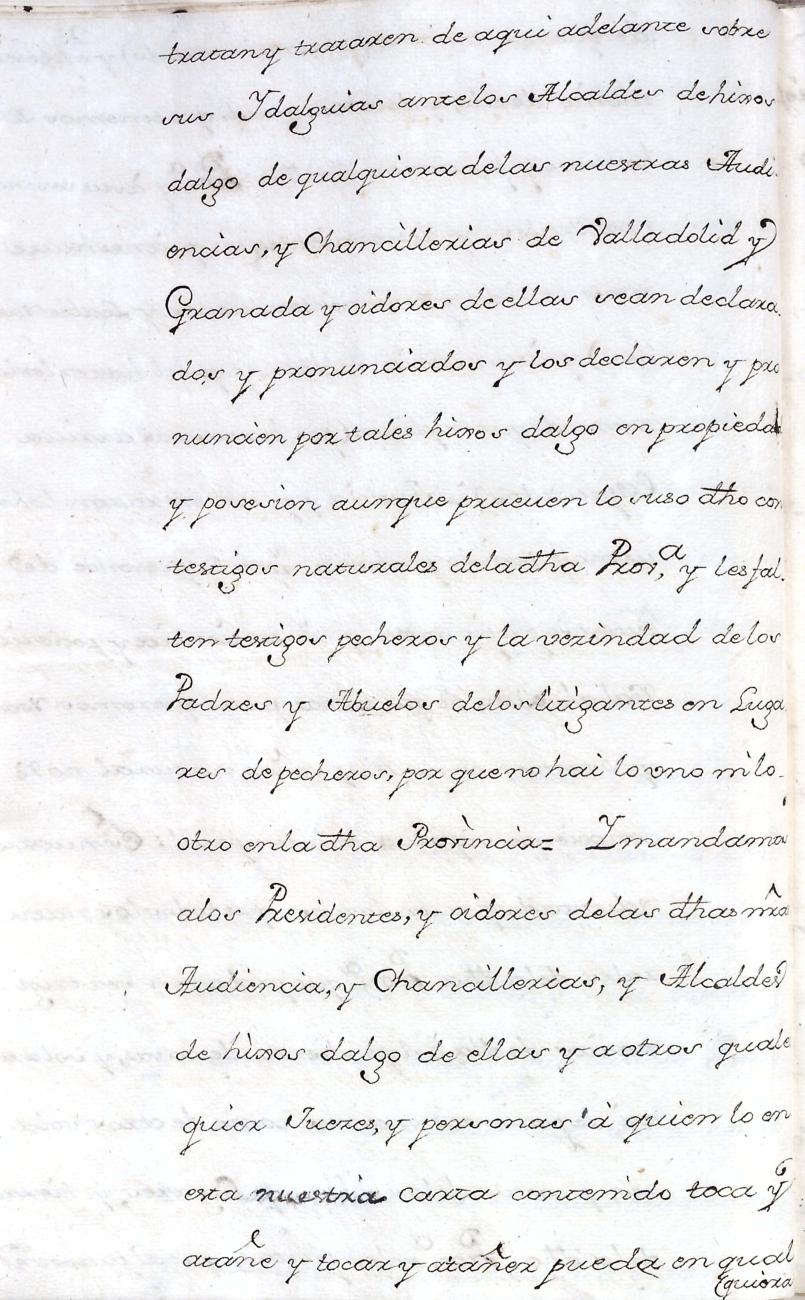 tratan y trataren de aqui adelante sobre
sus Ydalguias ante los Alcaldes de hixos
dalgo de qualquiera de las nuestras Audi
encias, y Chancillerias de Valladolid y
Granada y oidores de ellas sean declara
dos y pronunciados y los declaren y pro
nuncien por tales hixos dalgo en propiedad
y posesion aunque prueuen lo suso dho con
testigos naturales de la dha Prov,ª y les fal
ten testigos pecheros y la vezindad de los
Padres y Abuelos de los litigantes en Luga
res de pecheros, por que no hai lo vno ni lo
otro en la dha Provincia= Y mandamos
a los Presidentes, y oidores de las dhas nrãs
Audiencia, y Chancillerias, y Alcaldes
de hixos dalgo de ellas y a otros quales
quier Juezes, y personas à quien lo en
esta nuestra carta contenido toca y
atañe y tocar y atañer pueda en qual
quiera